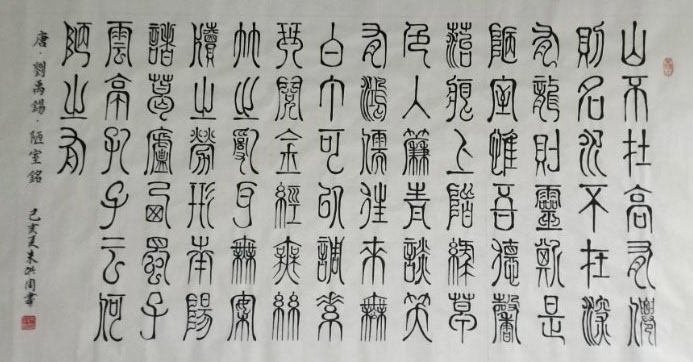 山不在高有僊
則名水不在深
有龍則靈斯是
陋室惟吾德馨
苔痕上階綠草
色入簾青談笑
有鴻儒往來無
白丁可以調素
琴閱金經無絲
竹之亂耳無案
牘之勞形南陽
諸葛廬西蜀子
雲亭孔子云何
陋之有
唐·劉禹錫·陋室銘 己亥夏朱書